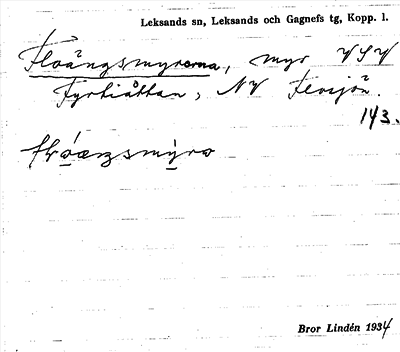 Leksands sn, Leksands och Gagnefs tg, Kopp. l.
Floängsmyrarna, myr VSV
Fyrtiåttan, NV Flosjön.
143.
Bror Lindén 1934